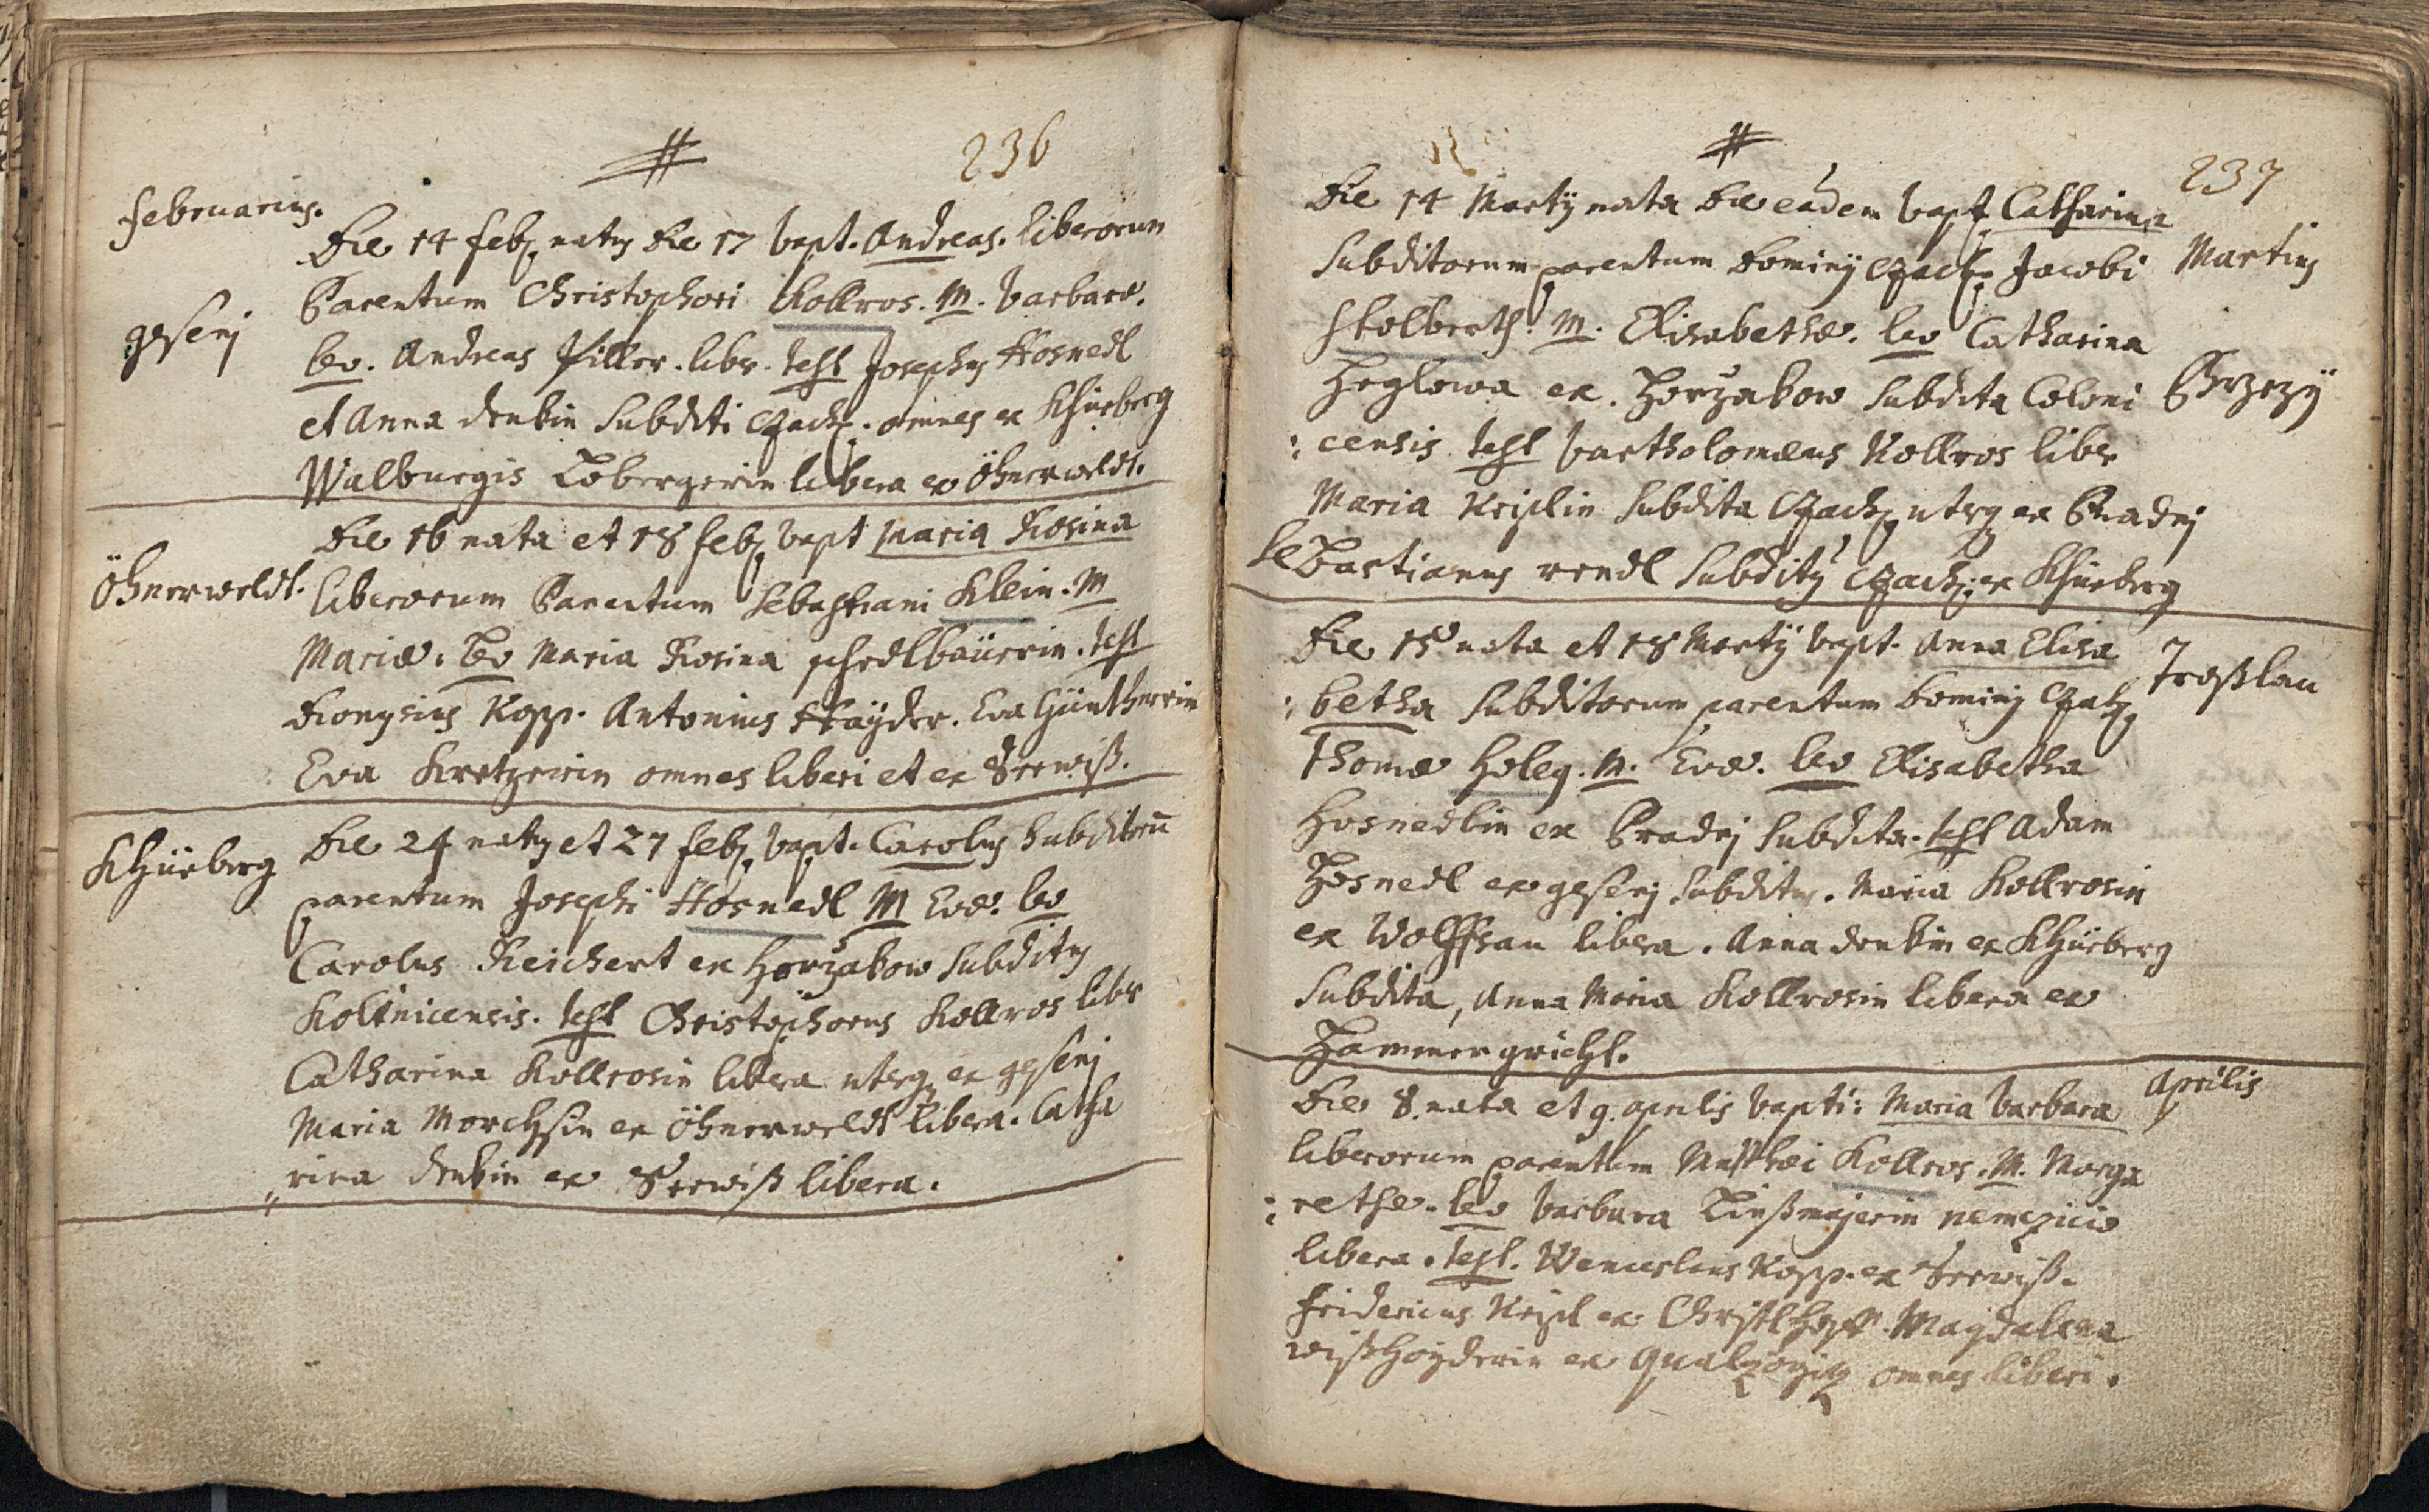 236
februarius.
Die 14 feb. natus Die 17 bapt. Andreas. liberorum
Parentum Christophori Kollros. M. barbarae.
gesenj
lev. Andreas Piller. liber. test Josephus Hosnedl
et Anna Denkin Subditi omnes ex Khüeberg
Walburgis Lobergerin libera ex Öhnerweldt.
Die 16 nata et 18 feb. bapt Maria Rosina
Öhnerweldt.
liberorum Parentum Sebastiani Klein. M
Mariae. lev Maria Rosina schedlbaürin. test
Dionysius Kopp. Antonius Hayder. Eva Güntherrin
Eva Kretzerin omnes liberi et ex Seewiß.
Khüeberg
Die 24 natus et 27 feb. bapt. Carolus Subditorū
parentum Josephi Hosnedl M Evae. lev
Carolus Reichert ex Horzakow Subditus
Kolinicensis. test Christophorus Kollros liber
Catharina Kollrosin libera utrq ex gesenj
Maria Morchsin ex Öhnerweldt libera. Catha
„rina Denkin ex Seewiß libera.
237
Die 14 Martÿ nata Die eadem bapt Catharina
Martius
Subditorum parentum Dominÿ Jacobi
Stolberth. M. Elisabethae. lev Catharina
Heglowa ex. Horzakow Subdita Coloni
Brzezÿ
: censis test bartholomaeus Kollros liber
Maria Kriplin Subdita utrq ex Pradnj
Sebastianus rendl Subditus ex Khüeberg
Die 15 nata et 18 Martÿ bapt. Anna Elisa
Troßlau
: betha Subditorum parentum Dominj
Thomae Holeg. M. Evae. lev Elisabetha
Hosnedlin ex Pradnj Subdita. test Adam
Hosnedl ex gesenj Subditus. Maria Kollrosin
ex Wolffrau libera. Anna Denkin ex Khüeberg
Subdita, Anna Maria Kollrosin libera ex
Hammergricht.
Aprilis
Die 8. nata et 9. aprilis bapti: Maria barbara
liberorum parentum Mathaei Kollros. M. Marga
: rethae. lev barbara Linßmajerin nemczicio
libera. test. Wenceslaus Kopp. ex Seewiß.
fridericus Kripl ex Christlhoff. Magdalena
wißhoyderin ex omnes liberi.